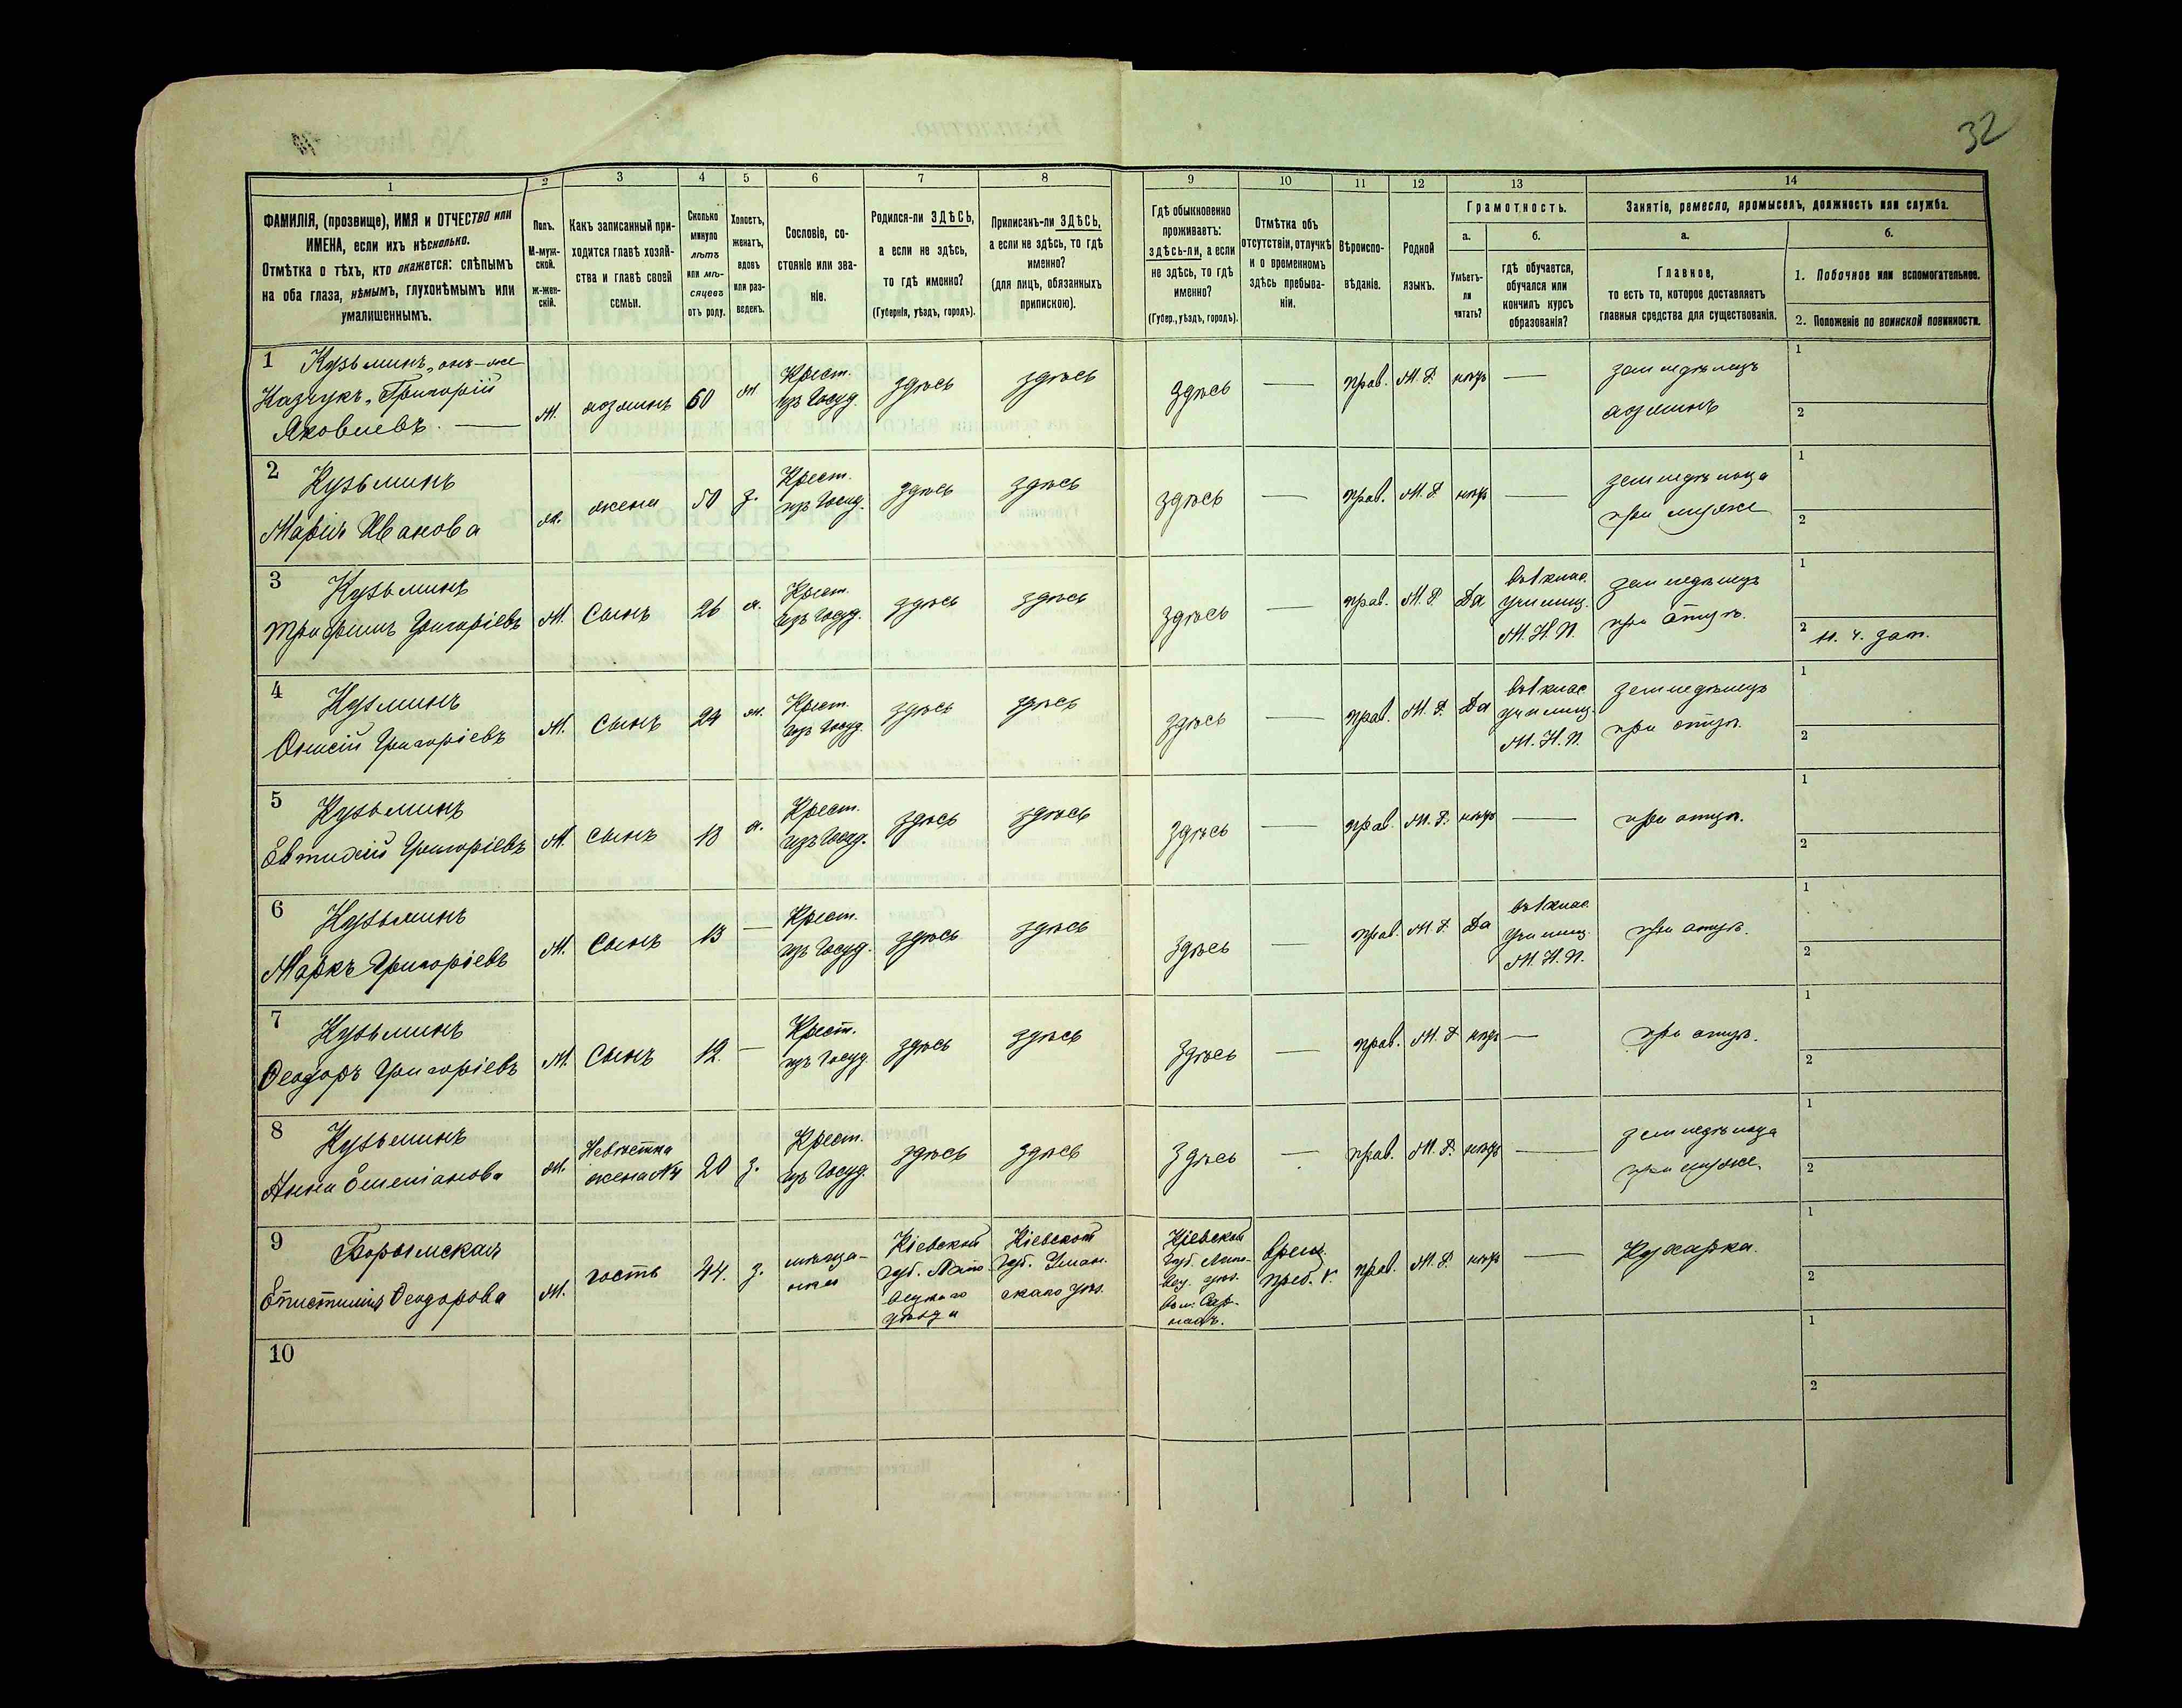 32
1
2
3
4
5
6
7
8
9
10
11
12
13
14
ФАМИЛІЯ, (прозвище), ИМЯ и ОТЧЕСТВО или
ИМЕНА, если ихъ нѣсколько.
Отмѣтка о тѣхъ, кто окажется: слѣпымъ
на оба глаза, нѣмымъ, глухонѣмымъ или
умалишеннымъ.
Полъ.
М-муж-
ской.
ж-жен-
скій.
Какъ записанный при-
ходится главѣ хозяй-
ства и главѣ своей
семьи.
Сколько
минуло
лѣтъ
или мѣ-
сяцевъ
отъ роду.
Холостъ,
женатъ,
вдовъ
или раз-
веденъ.
Сословіе, со-
стояніе или зва-
ніе.
Родился-ли ЗДѢСЬ,
а если не здѣсь,
то гдѣ именно?
(Губернія, уѣздъ, городъ).
Приписанъ-ли ЗДѢСЬ,
а если не здѣсь, то гдѣ
именно?
(для лицъ, обязанныхъ
припискою).
Гдѣ обыкновенно
проживаетъ:
здѣсь-ли, а если
не здѣсь, то гдѣ
именно?
(Губер., уѣздъ, городъ).
Отмѣтка объ
отсутствіи, отлучкѣ
и о временномъ
здѣсь пребыва-
ніи.
Вѣроиспо-
вѣданіе.
Родной
языкъ.
Грамотность.
а.
Умѣетъ-
ли
читать?
б.
гдѣ обучается,
обучался или
кончилъ курсъ
образованія?
Занятіе, ремесло, промыселъ, должность или служба.
а.
Главное,
то есть то, которое доставляетъ
главныя средства для существованія.
б.
1. Побочное или вспомогательное.
2. Положеніе по воинской повинности.
1 Кузьминъ, онъ-же
Казчукъ, Григорій
Яковлевъ.
м. хозяинъ 60 ж. Крест. изъ Госуд. здѣсь здѣсь здѣсь — прав. М. Р. нѣтъ — земледѣлецъ хозяинъ
1
2
2 Кузьминъ
Марія Иванова
ж. жена 50 з. Крест. изъ Госуд. здѣсь здѣсь здѣсь — прав. М. Р. нѣтъ — земледѣлица при мужѣ
1
2
3 Кузьминъ
Трифинъ Григоріевъ
М. Сынъ 26 х. Крест. изъ Госуд. здѣсь здѣсь здѣсь — прав. М. Р. Да въ 1 клас. училищ. М. Н. П. земледѣлецъ при отцѣ.
1
2 н. ч. зап.
4 Кузминъ
Онисій Григоріевъ
М. Сынъ 24 ж. Крест. изъ Госуд. здѣсь здѣсь здѣсь — прав. М. Р. Да въ 1 клас. училищ. М. Н. П. земледѣлецъ при отцѣ.
1
2
5 Кузьминъ
Евтихій Григоріевъ
М. Сынъ 18 х. Крест. изъ Госуд. здѣсь здѣсь здѣсь — прав. М. Р. нѣтъ — при отцѣ.
1
2
6 Кузьминъ
Маркъ Григоріевъ
М. Сынъ 13 — Крест. изъ Госуд. здѣсь здѣсь здѣсь — прав. М. Р. Да въ 1 клас. училищ. М. Н. П. при отцѣ.
1
2
7 Кузьминъ
Ѳеодоръ Григоріевъ
М. Сынъ 12. — Крест. изъ Госуд. здѣсь здѣсь здѣсь — прав. М. Р. нѣтъ — при отцѣ.
1
2
8 Кузьминъ
Анна Емеліанова
ж. Невѣстка жена №4 20 з. Крест. изъ Госуд. здѣсь здѣсь здѣсь — прав. М. Р. нѣтъ — земледѣлица при мужѣ.
1
2
9 Борымская
Епистимія Ѳеодорова
ж. гость 44. з. мѣща-
нка
Кіевской
губ. Липо-
вецкаго
уѣзда
Кіевской
губ. Уман-
скаго уѣз.
Кіевской
губ. Липо-
вец. уѣз.
врем.
преб.
прав. М. Р. нѣтъ — Кухарка.
1
2
10
1
2